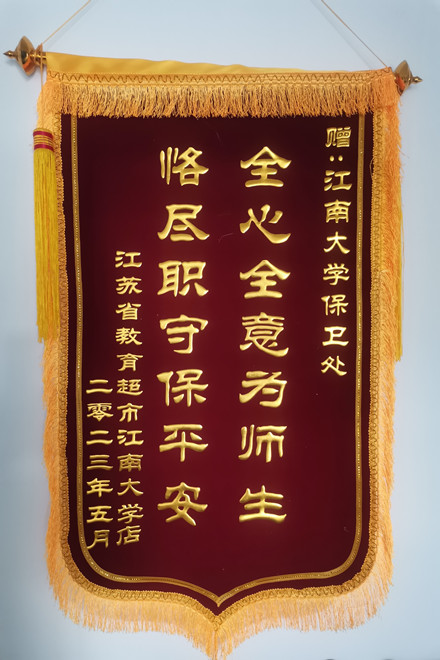 赠:江南大学保卫处
全心全意为师生
恪尽职守保平安
江苏省教育超市江南大学店
二零二三年五月